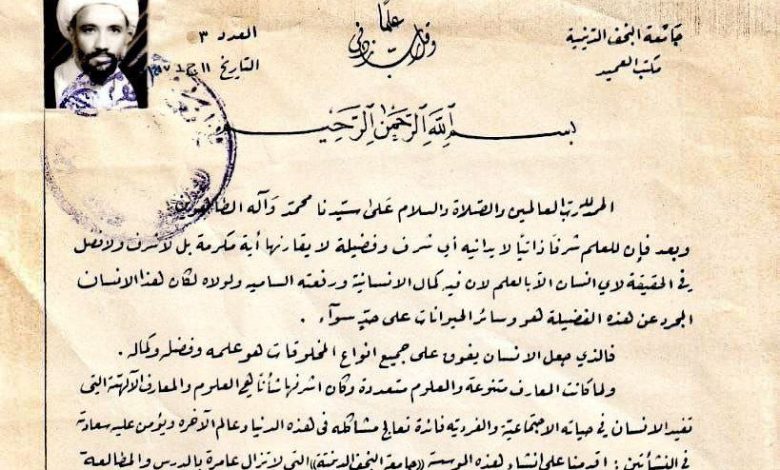 جامعة النجف الدينية
مكتب العميد
وقل رب زدني علماً
العدد ٣
التاريخ ١١
بسم الله الرحمن الرحيم
الحمد لله رب العالمين والصلاة والسلام على سيدنا محمد وآله الطاهرين
وبعد فإن للعلم شرفاً ذاتياً لا يدانيه أي شرف وفضيلة لا يقارنها أية مكرمة بل لا شرف ولا فضل
في الحقيقة لاي انسان الا بالعلم لان فيه كمال الانسانية ورفعته الساميه ولولاه لكان هذا الانسان
المجرد عن هذه الفضيلة هو وسائر الحيوانات على حدٍ سوآء .
فالذي جعل الانسان يفوق على جميع انواع المخلوقات هو علمه وفضله وكماله .
ولما كانت المعارف متنوعة والعلوم متعددة وكان اشرفها شأناً هي العلوم والمعارف الآلهية التي
تفيد الانسان في حياته الاجتماعية والفردية فائدة تعالج مشاكله في هذه الدنيا وعالم الآخره ويؤمن عليه سعادة
في النشأتين : اقدمنا على انشاء هذه المؤسسة «جامعة النجف الدينية» التي لا تزال عامرة بالدرس والمطالعة